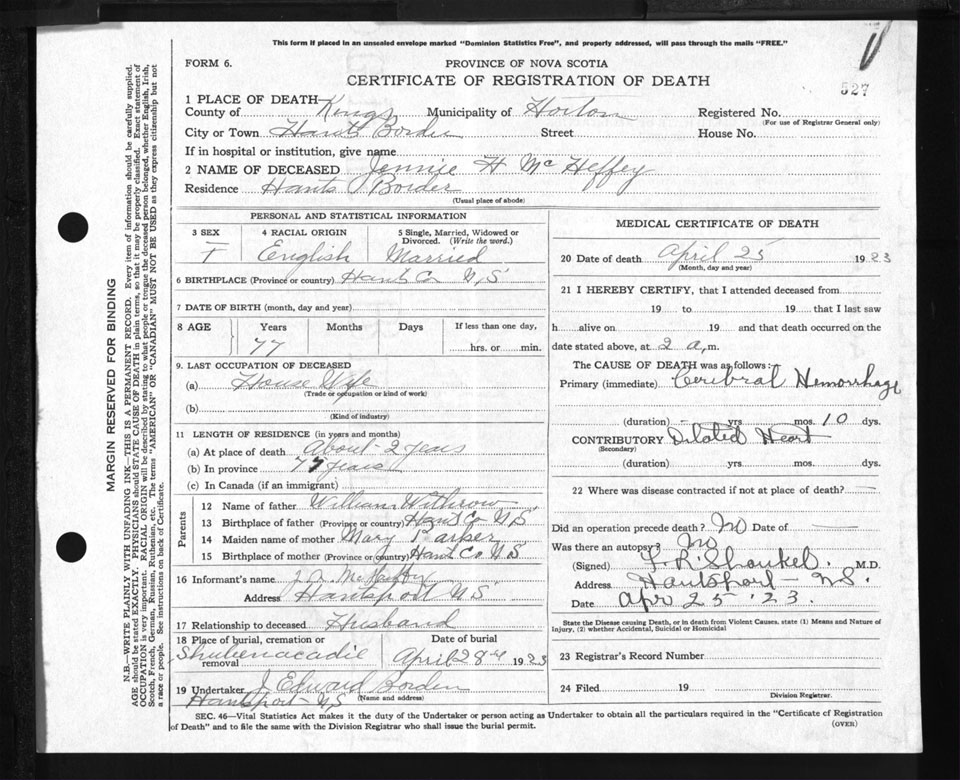 This form if placed in an unsealed envelope marked "Dominion Statistics Free", and properly addressed, will pass through the mails "FREE."
FORM 6.
PROVINCE OF NOVA SCOTIA
CERTIFICATE OF REGISTRATION OF DEATH
527
1 PLACE OF DEATH—
County of Kings Municipality of Horton Registered No.
(For use of Registrar General only)
City or Town Hants Border Street House No.
If in hospital or institution, give name
2 NAME OF DECEASED Jennie H McHeffey
Residence Hants Border
(Usual place of abode)
PERSONAL AND STATISTICAL INFORMATION
3 SEX 4 RACIAL ORIGIN 5 Single, Married, Widowed or Divorced. (Write the word.)
F English Married
6 BIRTHPLACE (Province or country) Hants Co N,S
7 DATE OF BIRTH (month, day and year)
8 AGE Years Months Days If less than one day,
77 hrs. or min.
9. LAST OCCUPATION OF DECEASED
(a) House Wife
(Trade or occupation or kind of work)
(b)
(Kind of industry)
11 LENGTH OF RESIDENCE (in years and months)
(a) At place of death About 2 years
(b) In province 77 years
(c) In Canada (if an immigrant)
Parents
12 Name of father William Withrow
13 Birthplace of father (Province or country) Hants Co N S
14 Maiden name of mother Mary Parker
15 Birthplace of mother (Province or country) Hants Co N S
16 Informant's name J A McHeffey
Address Hantsport N S
17 Relationship to deceased Husband
18 Place of burial, cremation or removal Date of burial
Shubenacadie April 28th 1923
19 Undertaker J Edward Borden
(Name and address)
Hantsport N S
MEDICAL CERTIFICATE OF DEATH
20 Date of death April 25 1923
(Month, day and year)
21 I HEREBY CERTIFY, that I attended deceased from
19 to 19 that I last saw
h alive on 19 and that death occurred on
date stated above, at 2 a, m.
The CAUSE OF DEATH was as follows:
Primary (immediate) Cerebral Hemorrhage
(duration) yrs mos. 10 dys.
CONTRIBUTORY Dilated Heart
(Secondary)
(duration) yrs mos. dys.
22 Where was disease contracted if not at place of death?
Did an operation precede death? No Date of
Was there an autopsy? No
(Signed) M.D.
Address Hantsport - N S.
Date Apr 25 '23
State the Disease causing Death, or in death from Violent Causes, state (1) Means and Nature of
Injury, (2) whether Accidental, Suicidal or Homicidal
23 Registrar's Record Number
24 Filed 19
Division Registrar.
SEC. 46—Vital Statistics Act makes it the duty of the Undertaker or person acting as Undertaker to obtain all the particulars required in the "Certificate of Registration
of Death" and to file the same with the Division Registrar who shall issue the burial permit.
(OVER)
MARGIN RESERVED FOR BINDING
N.B.—WRITE PLAINLY WITH UNFADING INK—THIS IS A PERMANENT RECORD. Every item of information should be carefully supplied.
AGE should be stated EXACTLY. PHYSICIANS should STATE CAUSE OF DEATH in plain terms, so that it may be properly classified. Exact statement of
OCCUPATION is very important. RACIAL ORIGIN will be described by stating to what people or tongue the deceased person belonged, whether English, Irish,
Scotch, French, German, Russian, Ruthenian, etc. The terms "AMERICAN" OR "CANADIAN" MUST NOT BE USED as they express citizenship but not
a race or people. See instructions on back of Certificate.